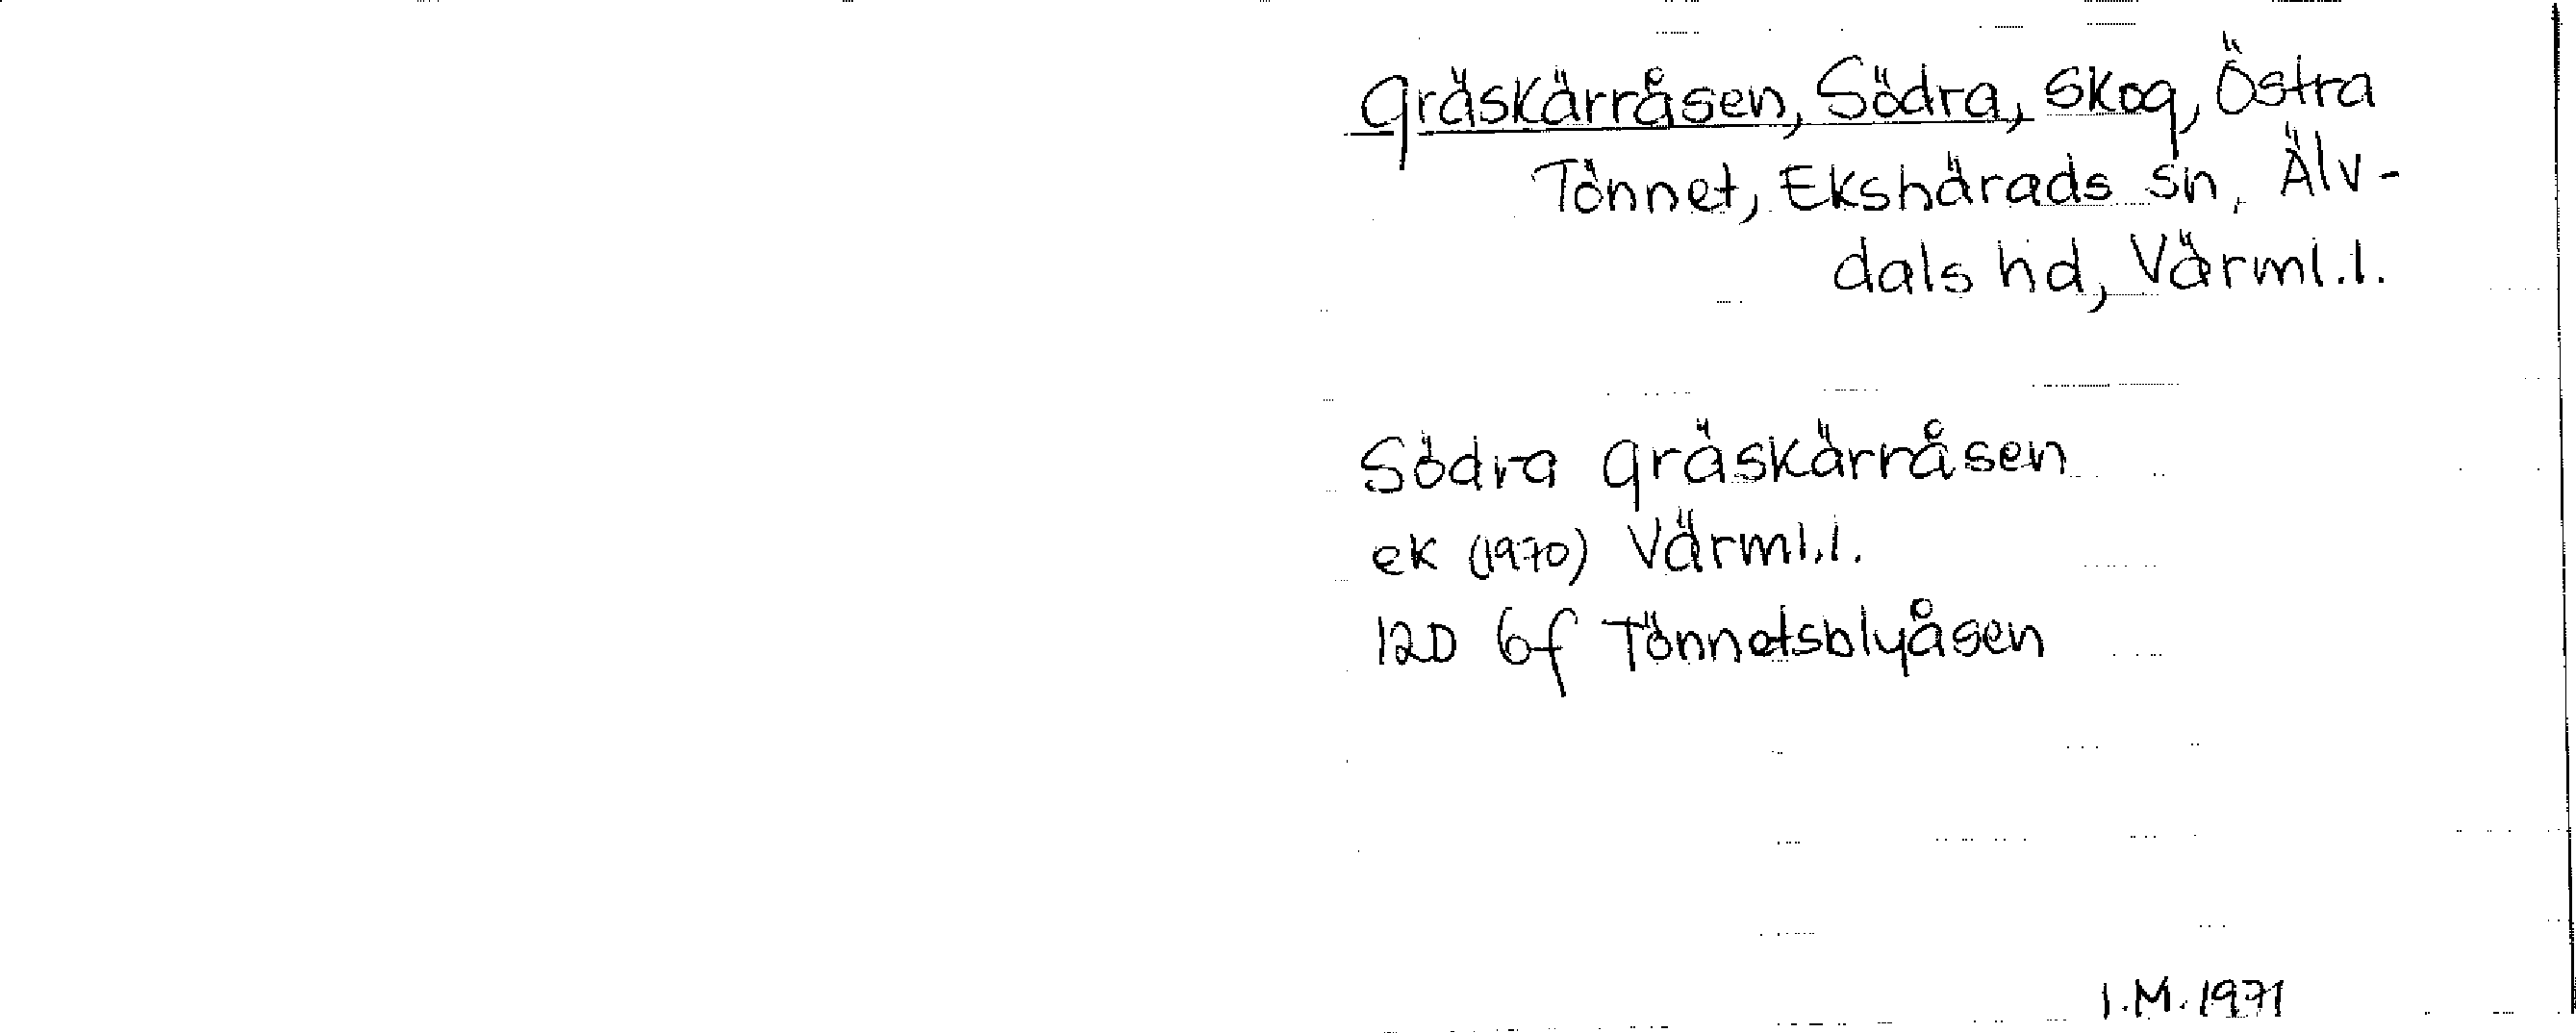 Gräskärråsen, Södra, skog, Östra
Tönnet, Ekshärads sn, Älv-
dals hd, Värml.l.
Södra Gräskärråsen
ek (1970) Värml.l.
12D 6f Tönnetsblyåsen
I.M. 1971